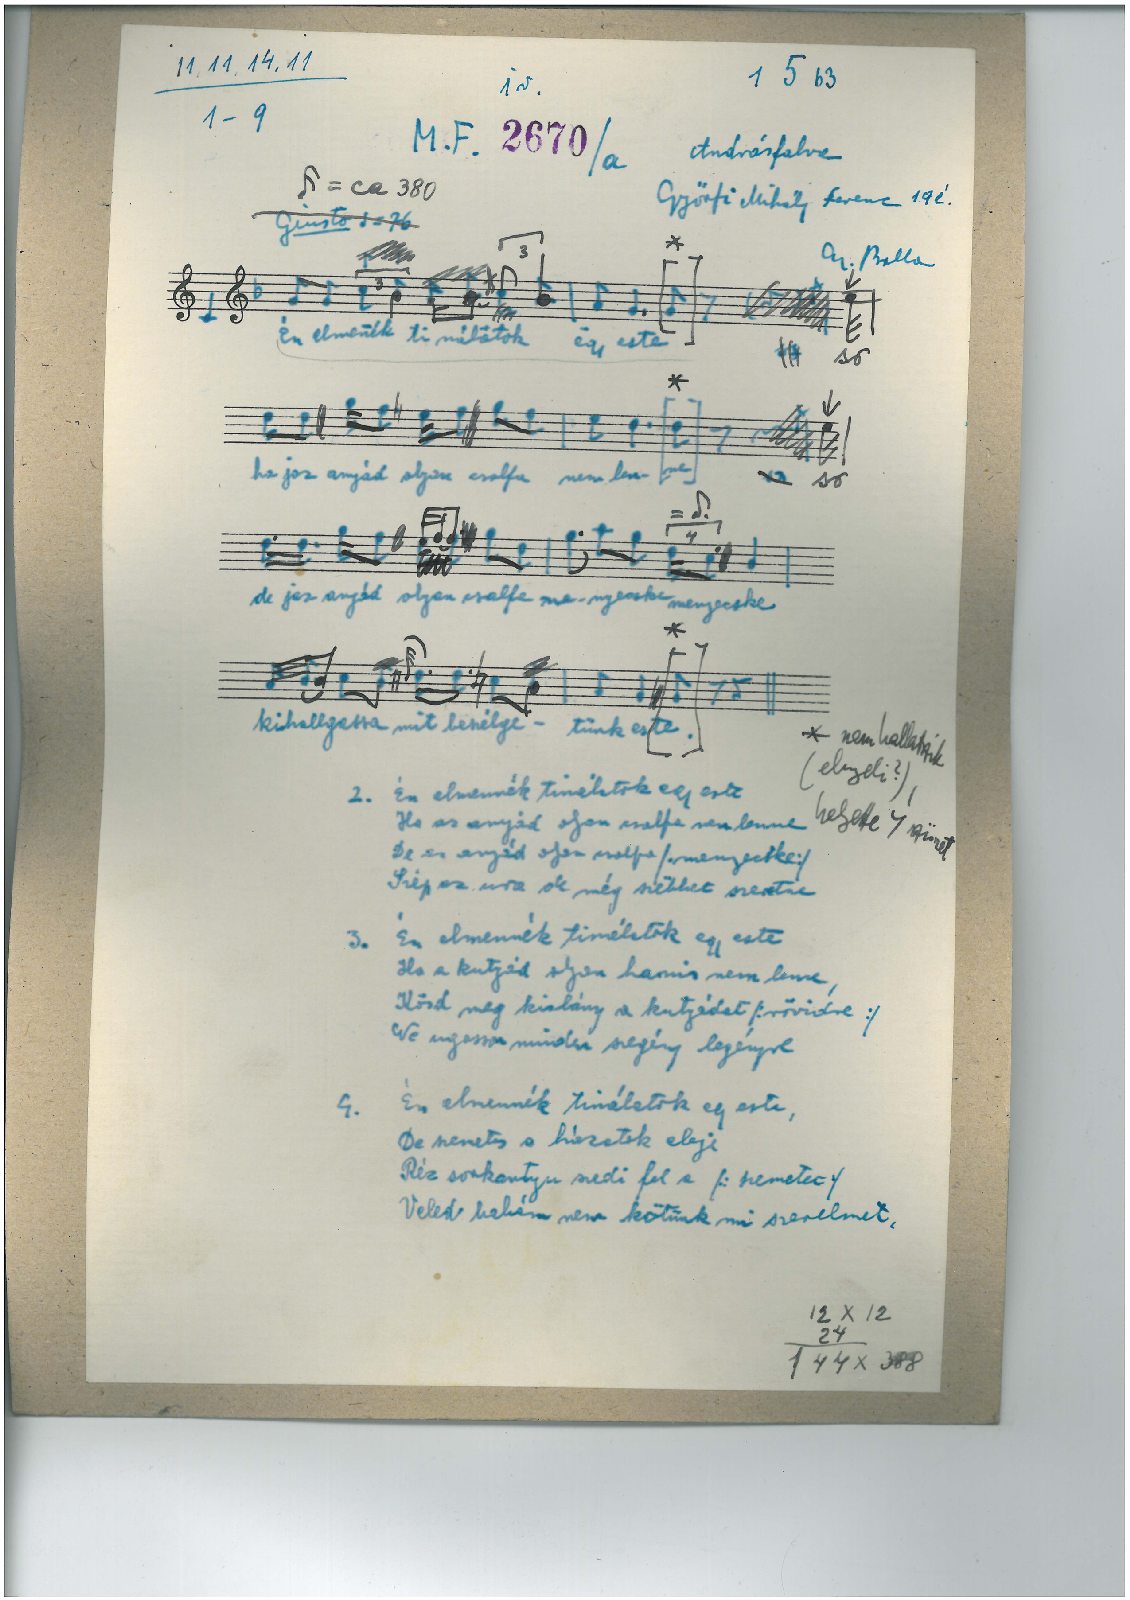 11. 11. 14. 11
iv.
1 5 b3
1 - 9
M.F. 2670/a
Andrásfalva
♪ = ca 380
Györfi Mihály Ferenc 19é.
Giusto ♩ = 76
3
3
*
Én elmennék ti nálatok egy este
só
*
ha jaz anyád olyan csalfa nem len- ne
só
= ♪.
4
de jaz anyád olyan csalfa me-nyecske menyecske
*
kihallgassa mit beszélge - tünk este.
* nem hallatszik
(elnyeli?),
helyette 7 szünet
2. Én elmennék tinálatok egy este
Ha az anyád olyan csalfa nem lenne
De az anyád olyan csalfa /:menyecske:/
Szép az ura de még szebbet szeretne
3. Én elmennék tinálatok egy este
Ha a kutyád olyan hamis nem lenne,
Kösd meg kislány a kutyádat /:rövidre :/
Ne ugassон minden szegény legényre
4. Én elmennék tinálatok egy este,
De szemetes a házatok eleje
Réz sarkantyu szedi fel a /: szemetec :/
Veled babám nem kötünk mi szerelmet,
12 X 12
24
144 X